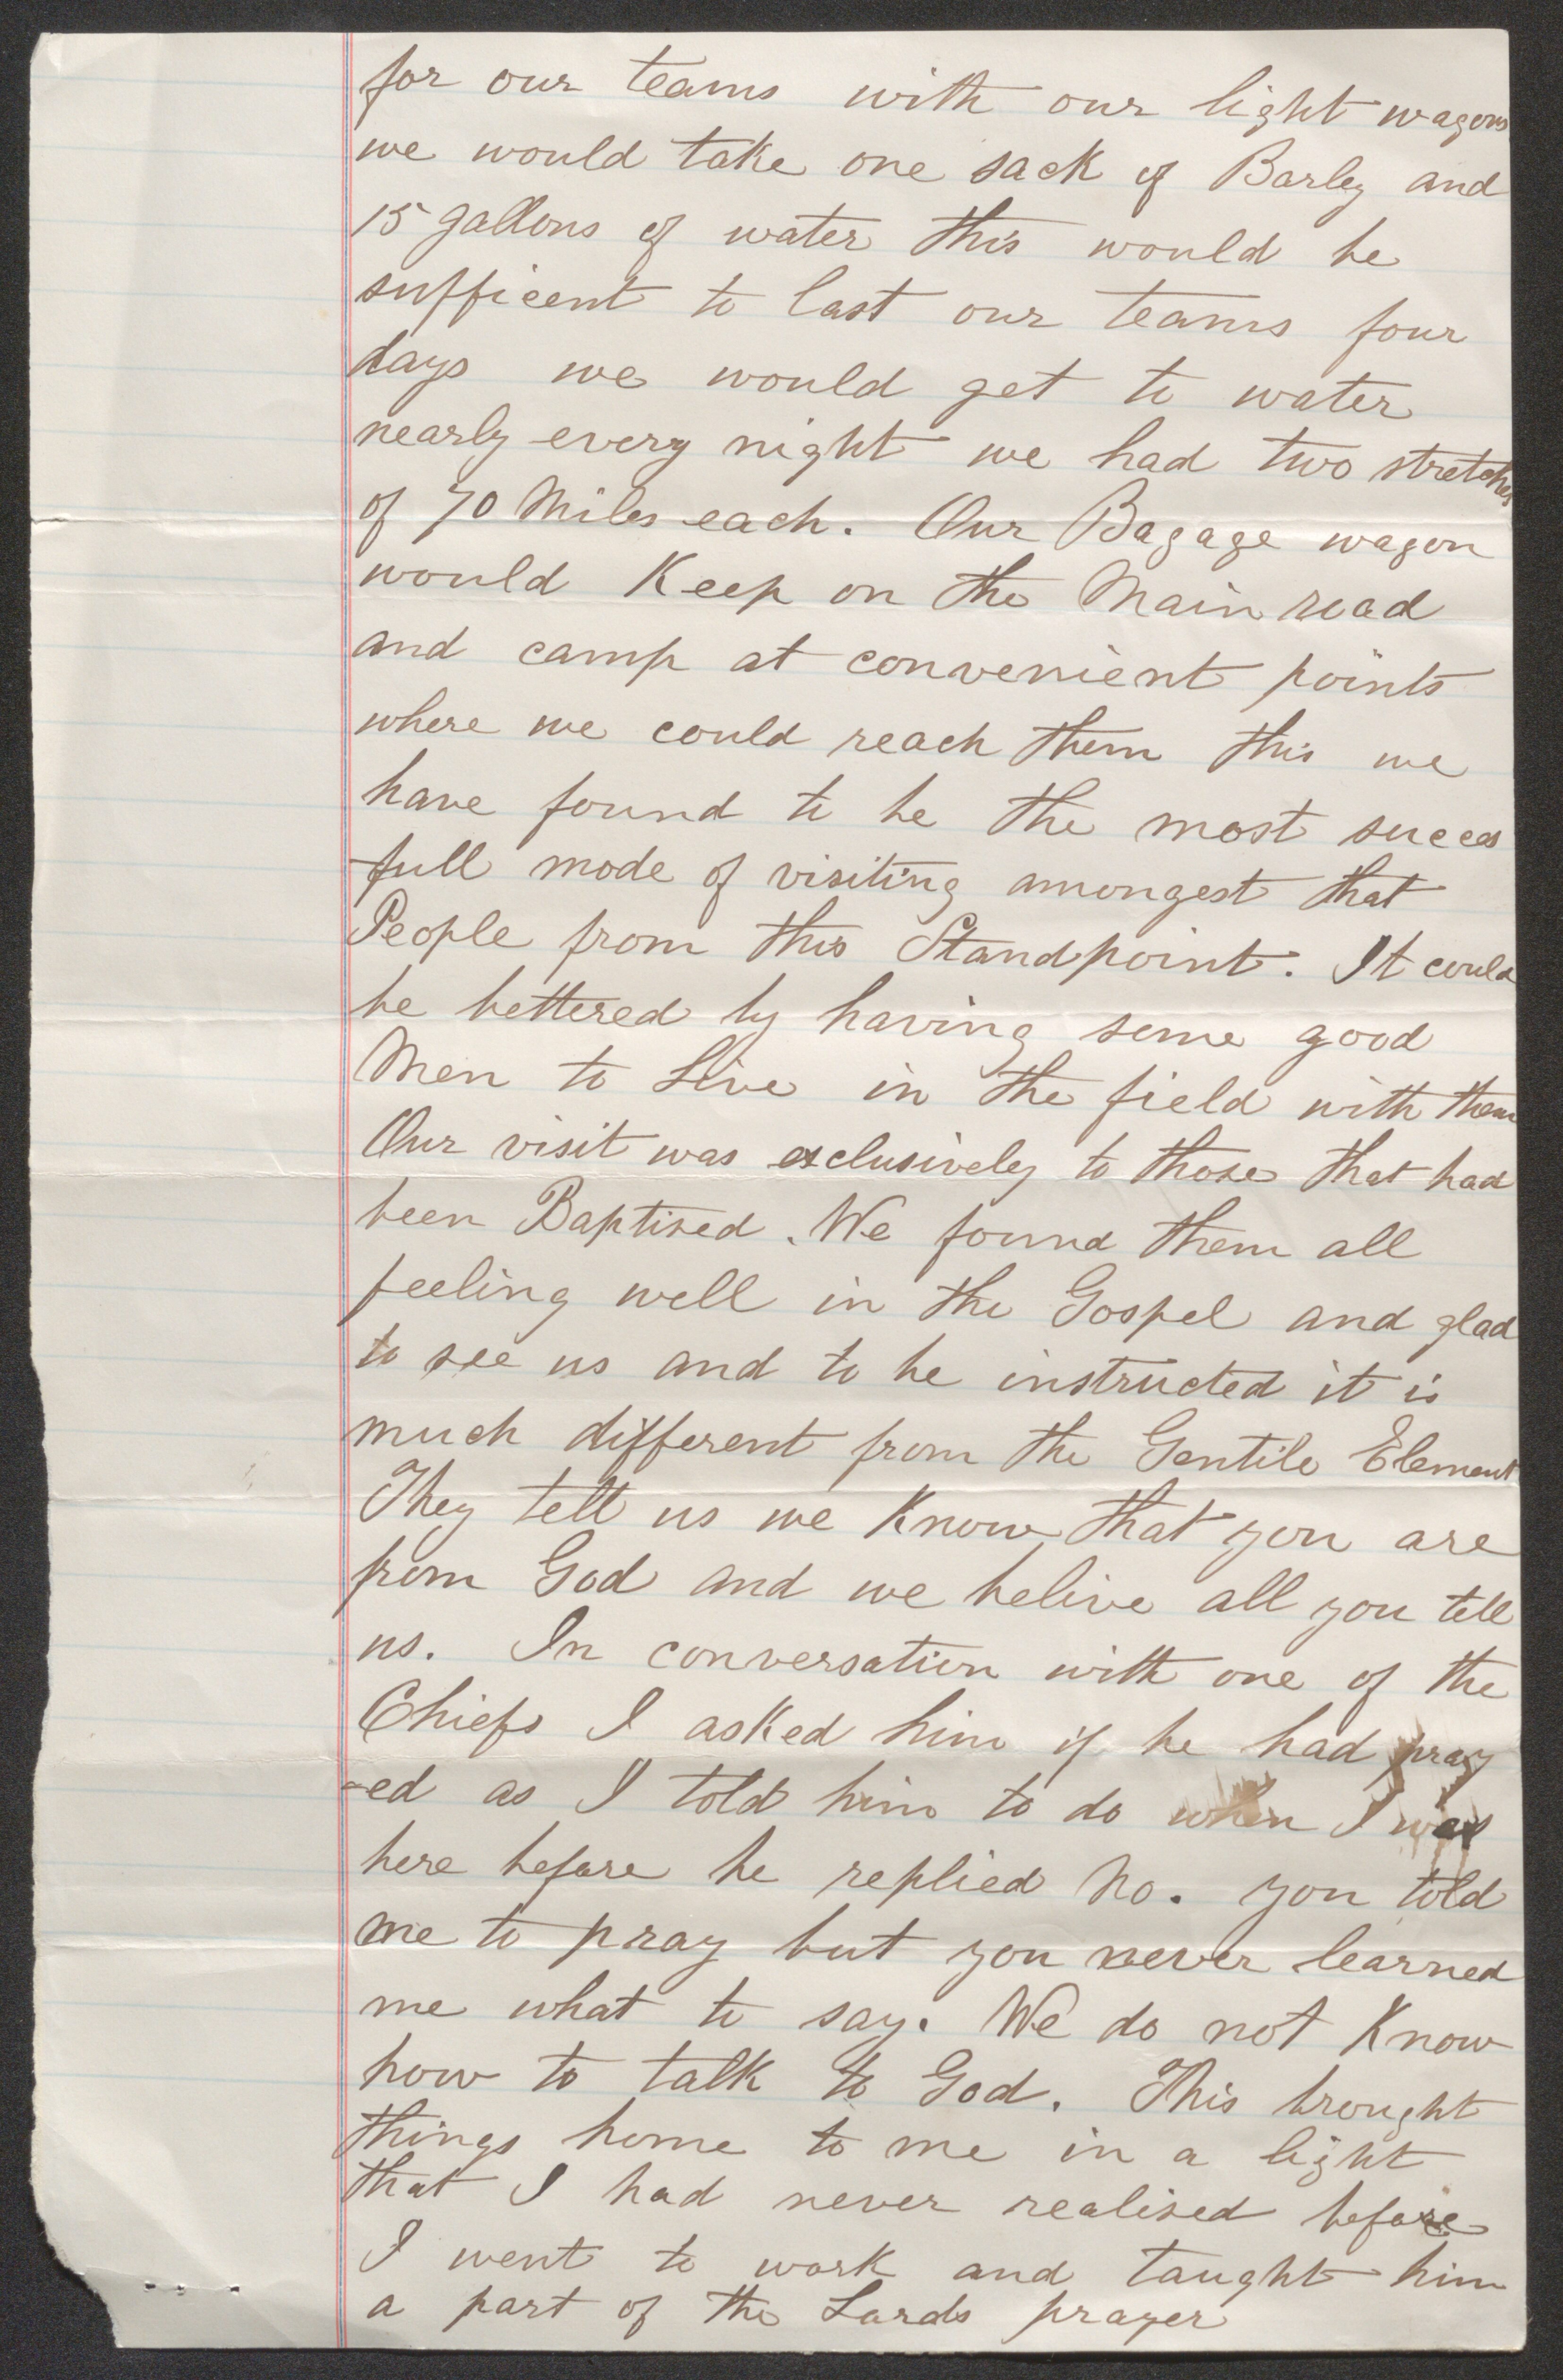 for our teams with our light wagons
we would take one sack of Barley and
15 gallons of water this would be
sufficent to last our teams four
days we would get to water
nearly every night we had two stretches
of 70 Miles each. Our Bagage wagon
would Keep on the Main road
and camp at convenient points
where we could reach them this we
have found to be the most succes
full mode of visiting amongest that
People from this Standpoint. It could
be bettered by having some good
Men to Live in the field with them
Our visit was exclusively to those that had
been Baptised. We found them all
feeling well in the Gospel and glad
to see us and to be instructed it is
much different from the Gentile Element
They tell us we Know that you are
from God and we belive all you tell
us. In conversation with one of the
Chiefs I asked him if he had pray
-ed as I told him to do when I was
here before he replied No. you told
me to pray but you never learned
me what to say. We do not Know
how to talk to God. This brought
things home to me in a light
that I had never realised before
I went to work and taught him
a part of the Lords prayer